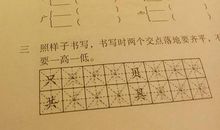 广
三 照样子书写，书写时两个交点落地要齐平，不
要一高一低。
只 贝
共 具